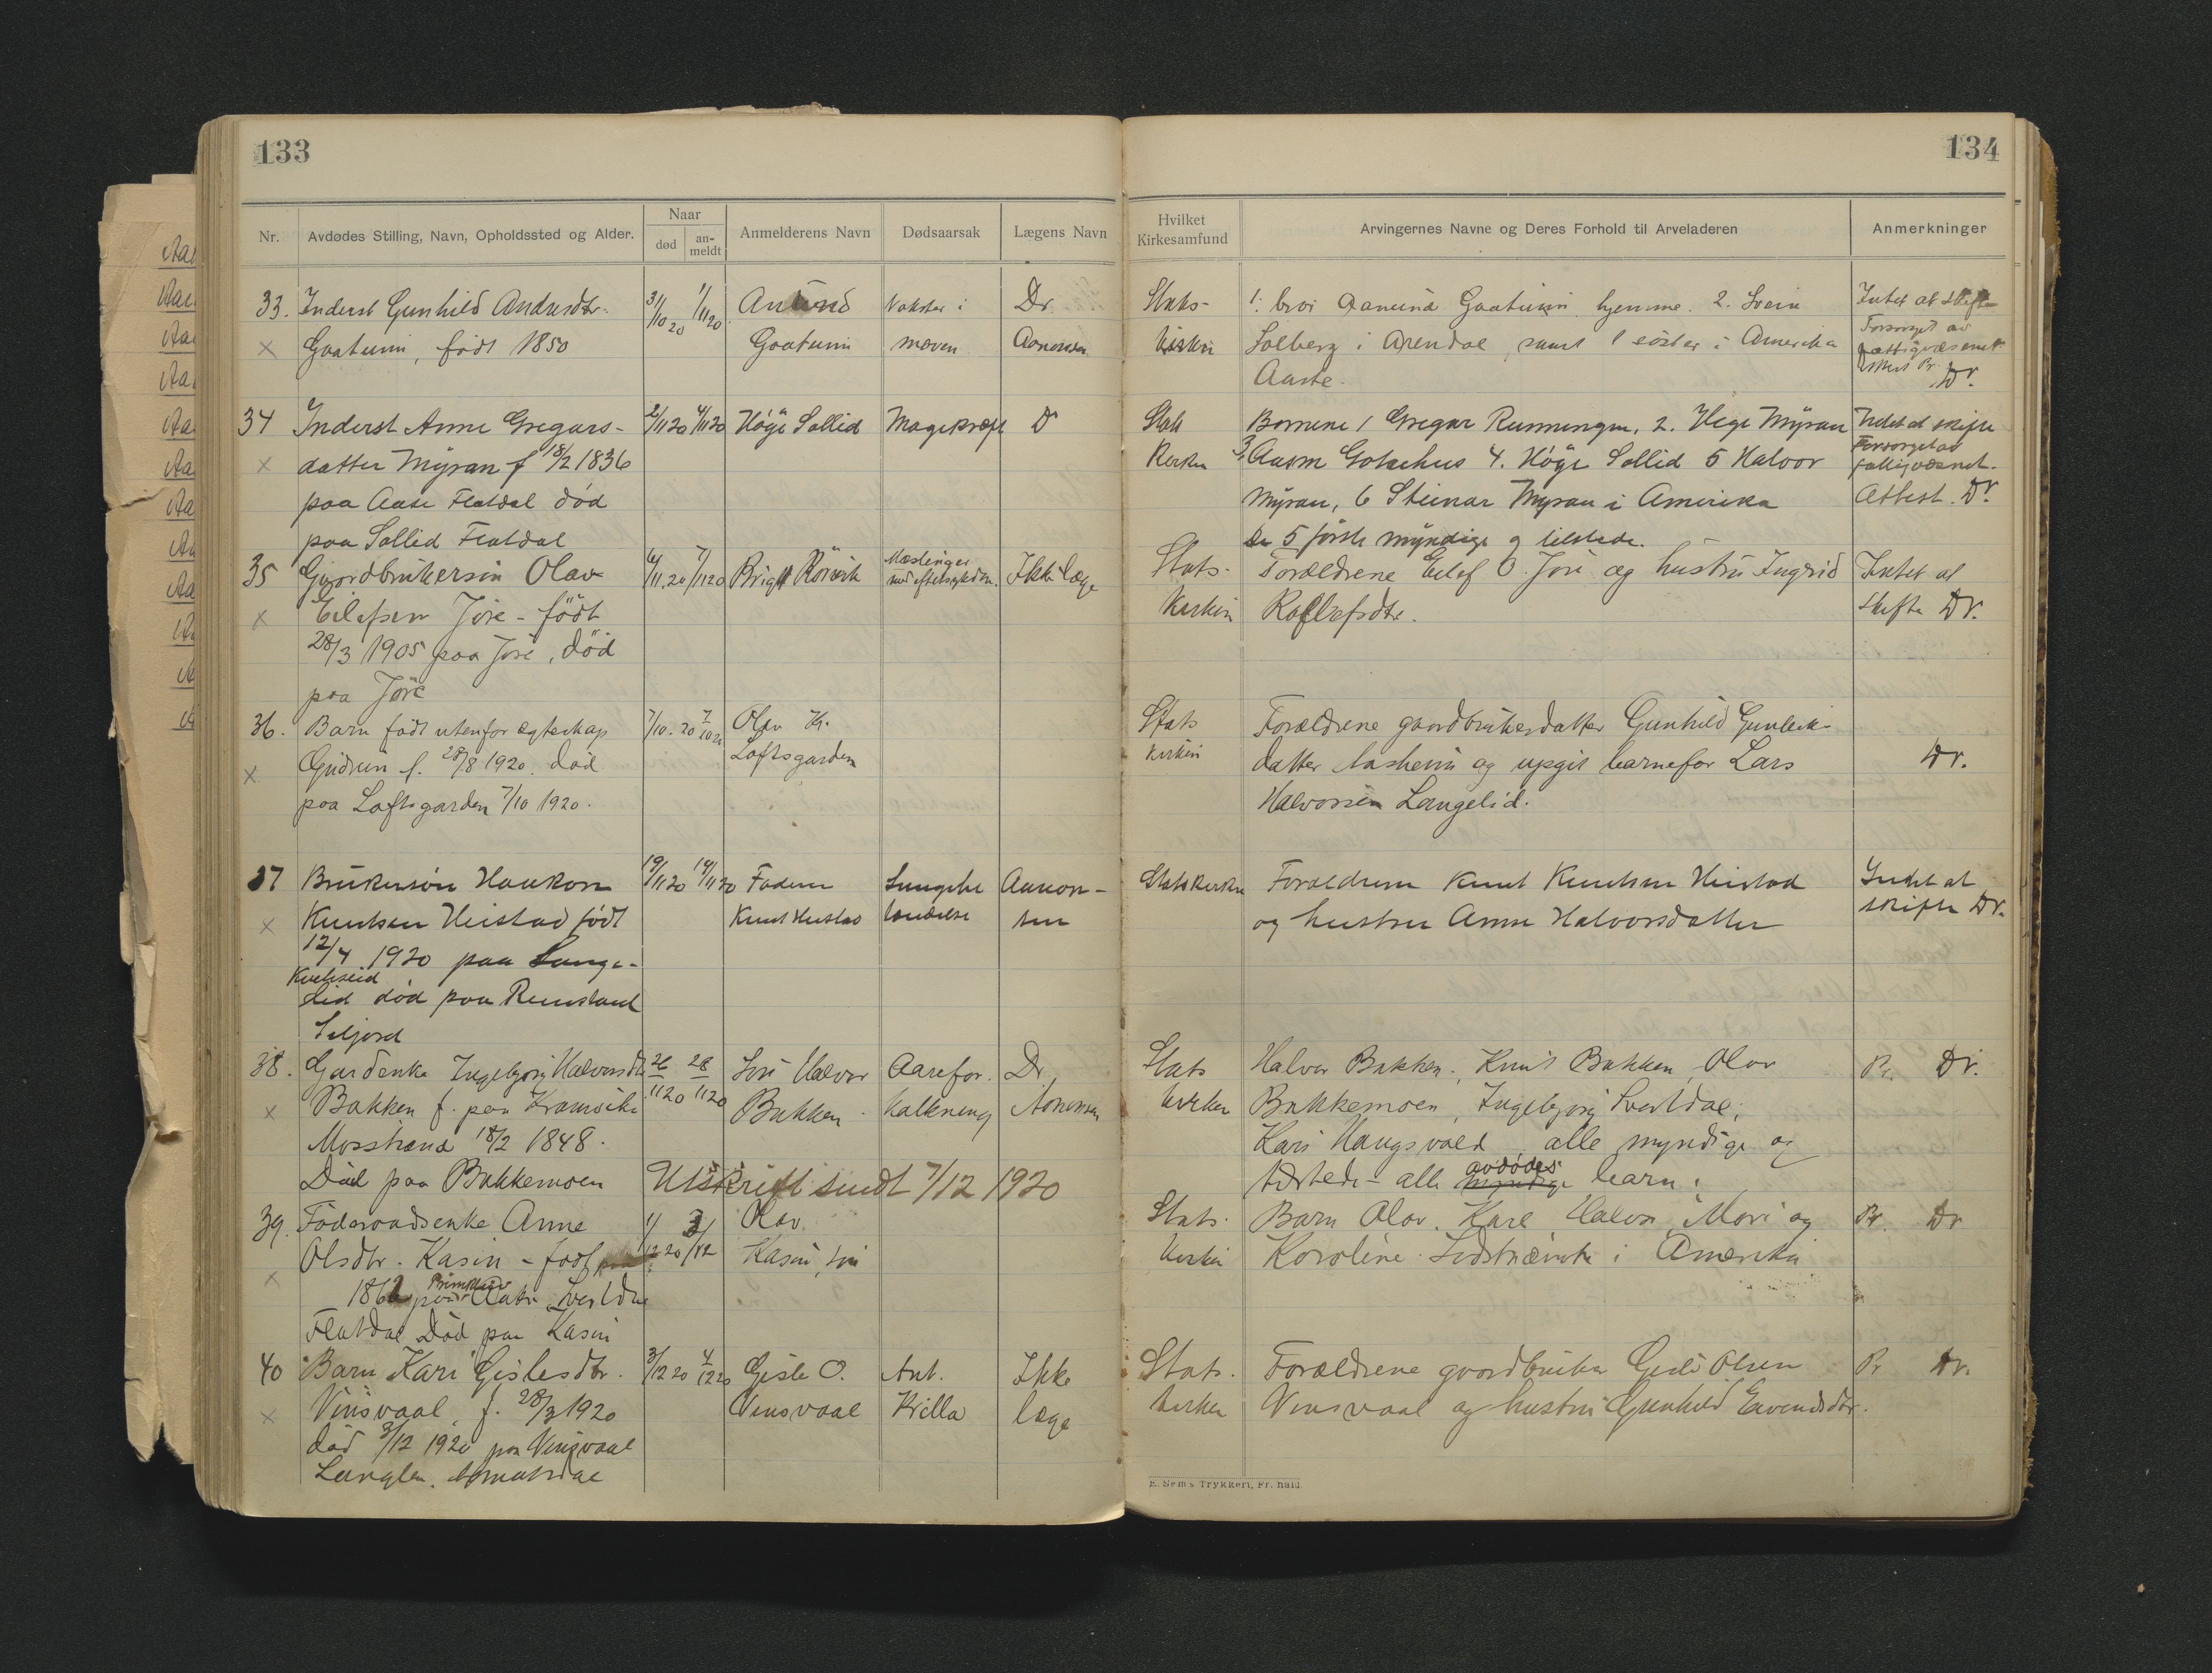 133
Nr.
Avdødes Stilling, Navn, Opholdssted og Alder.
Naar
død
an-
meldt
Anmelderens Navn
Dødsaarsak
Lægens Navn
33. Inderst Gunhild Andresdtr. 31/10 20 1/11 20 Anund Vekster i Dr.
Gaatunn, født 1850 Gaatunn maven Aanonsen
34 Inderst Anne Gregars- 2/11 20 4/11 20 Høge Sollid Magekræft Dr
datter Myran f 18/2 1836
paa Aase Flatdal død
paa Sollid Flatdal
35 Gaardbrukersøn Olav 6/11.20 7/11 20 Brigt Rørvik Mæslinger med eftersykdom. Ikke læge
Eilefsen Jore - født
28/3 1905 paa Jore, død
paa Jore
36. Barn født utenfor ægteskap 7/10. 20 7/10 20 Olav K.
Gudrun f. 28/8 1920. død Loftsgarden
paa Loftsgarden 7/10 1920.
37 Brukersøn Haakon 19/11 20 19/11 20 Faderen Lungebe Aanon-
Knutsen Heistad født Knut Heistad tændelse sen
12/4 1920 paa Lange-
Kviteseid
lid død paa Rundstad
Seljord
38. Gardenke Ingebjørg Halvorsdtr 26/11 20 28/11 20 Søn Halvor Aarefor. Dr.
Bakken f. paa Kramvike Bakken kalkning Aanonsen
Mosstrand 18/2 1848.
Død paa Bakkemoen Utskrift sendt 7/12 1920
39. Føderaadsenke Anne 1/12 20 3/12 Olav
Olsdtr. Kasin - født Kasin, søn
186
Flatdal Død paa Kasin
40 Barn Kari Gislesdtr. 3/12 20 4/12 20 Gisle O. Ant. Ikke
Vinsvaal, f. 28/3 1920 Vinsvaal Krilla læge
død 3/12 1920 paa Vinsvaal
134
Hvilket
Kirkesamfund
Arvingernes Navne og Deres Forhold til Arveladeren
Anmerkninger
Stats- 1. bror Aanund Gaatunn hjemme. 2. Svein Intet at skifte
kirken Solberg i Arendal, samt 1 søster i Amerika Forsørget av
fattigvæsenet
Aaste. Dr.
Stats Børnene 1 Gregar Runningen, 2. Hege Myran Intet at skifte
Kirken 3. Aasm Gotschus 4. Høge Sollid 5 Halvor Forsørget av fattigvæsnet.
Myran, 6 Steinar Myran i Amerika Attest. Dr.
De 5 første myndige og tilstede.
Stats- Forældrene Eilef O. Jore og hustru Ingrid Intet at
Kirken Rolleifsdtr. Skifte Dr.
Stats Forældrene gaardbrukerdatter Gunhild Gunleik-
kirken datter Aasheim og upgit barnefar Lars Dr.
Halvorsen Langelid.
Statskirken Forældrene Knut Knutsen Heistad Intet at
og hustru Anne Halvorsdatter skifte Dr.
Stats Halvor Bakken, Knut Bakken, Olav Pr. Dr.
kirken Bakkemoen, Ingebjørg Svartdal,
Kari Haugsvald alle myndige og
avdødes
tilstede - alle myndige barn.
Stats- Barn Olav. Karl Halvor, Mari og Pr. Dr
kirken Karoline. Sidstnævnte i Amerika
Stats- Forældrene gaardbruker Gisle Olsen Pr Dr.
kirken Vinsvaal og hustru Gunhild Eivindsdtr.
E. Sems Trykkeri, Fr. hald.